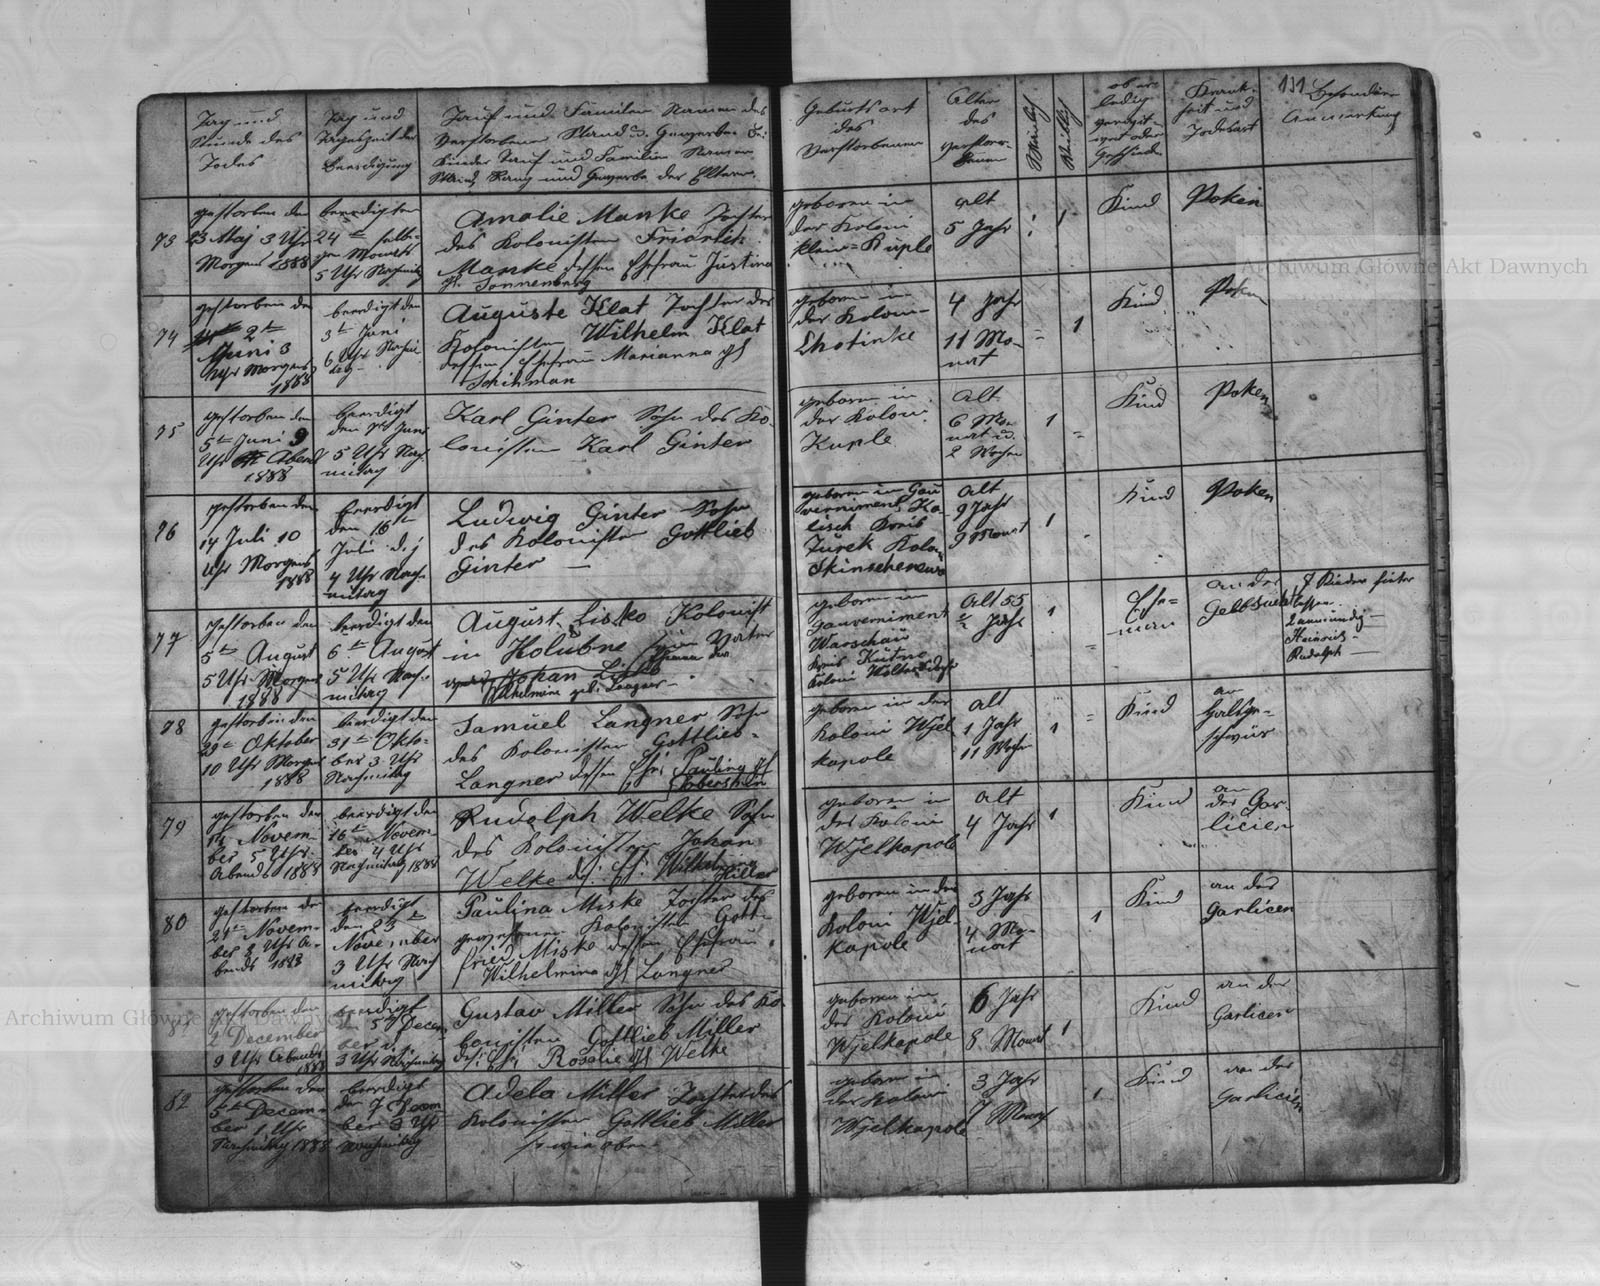 Tag und
Stunde des
Todes
Tag und
Tageszeit der
Beerdigung
Tauf und Familien Namen des
Verstorbenen Stand u. Gewerbe bei
Kinder Tauf und Familien Namen
Stand, Rang und Gewerbe der Eltern.
Geburtsort
des
Verstorbenen
Alter
des
verstor-
benen
Männlich
Weiblich
ob er
ledig
verehlicht
oder
Krank-
heit und
Todesart
111 Besondere
Anmerkung
73
gestorben den
23 Maj 3 Uhr
Morgens 1888
beerdigt den
24ten selbi-
gen Monats
5 Uhr Nachmitag
Amalie Manke Tochter
des Kolonisten Friedrich
Manke dessen Ehefrau Justina
g. Sonnenberg
geboren in
der Koloni
klein-Kuple
alt
5 Jahr
1
Kind
Poken
74
gestorben den
2te
Juni 3
Uhr Morgens
1888
beerdigt den
3te Juni
6 Uhr Nachmi-
tag
Auguste Klat Tochter des
Kolonisten Wilhelm Klat
dessen Ehefrau Marianna gb
Schikman
geboren in
der Koloni
Chotinke
4 Jahr
11 Mo-
nat
1
Kind
Poken
75
gestorben den
5ten Juni 9
Uhr Abend
1888
beerdigt
den 7t Juni
5 Uhr Nach-
mitag
Karl Ginter Sohn des Ko-
lonisten Karl Ginter
geboren in
der Koloni
Kuple
alt
6 Mo-
nat u.
2 Wochen
1
Kind
Poken
76
gestorben den
14 Juli 10
Uhr Morgens
1888
beerdigt
den 16te
Juli d. j
4 Uhr Nach-
mitag
Ludwig Ginter Sohn
des Kolonisten Gottlieb
Ginter
geboren im Gou
vernement Ka-
lisch Kreis
Turek Koloni
alt
9 Jahr
9 Monat
1
Kind
Poken
77
gestorben den
5ten August
5 Uhr Morgens
1888
beerdigt den
6ten August
5 Uhr Nach-
mitag
August Lisko Kolonist
in Kolubne seinen Vater
Johan Lisko
Wilhelmine geb. Langner
geboren im
Gauverniment
Warschau
Kreis Kutno
Koloni
alt 55
Jahr
1
Ehe-
man
an der
Gelbsucht
Kinder hinter
lassen
Heinrich
Rudolph
78
gestorben den
29te Oktober
10 Uhr Morgens
1888
beerdigt den
31te Okto-
ber 3 Uhr
Nachmitag
Samuel Langner Sohn
des Kolonisten Gottlieb
Langner dessen Ehe: Paulina gb
geboren in der
Koloni Wjel
kapole
alt
1 Jahr
11 Wochen
1
Kind
an
Halsge-
schwür
79
gestorben den
14 Novem-
ber 5 Uhr
Abends 1888
beerdigt den
16te Novem-
ber 4 Uhr
Nachmitag 1888
Rudolph Welke Sohn
des Kolonisten Johan
Welke des: Eh: Wilhelmina
Hiller
geboren in
der Koloni
Wjelkapole
alt
4 Jahr
1
Kind
an
der Gar-
licien
80
gestorben de
21te Novem-
ber 2 Uhr A-
bends 1888
beerdigt
den 23te
November
3 Uhr Nach
mitag
Paulina Miske Tochter des
gewesenen Kolonisten Gott-
fried Miske dessen Ehefrau
Wilhelmina gb Langner
geboren in der
Koloni Wjel-
kapole
3 Jahr
4 Mo-
nat
1
Kind
an der
Garlicen
81
gestorben den
2 December
9 Uhr Abends
1888
beerdigt
den 5 Decem
ber
3 Uhr Nachmitag
Gustav Miller Sohn des Ko-
lonisten Gottlieb Miller
des: Eh: Rosalie gb Welke
geboren in
der Koloni
Wjelkapole
6 Jahr
8 Monat
1
Kind
an der
Garlicen
82
gestorben den
5ten Decem-
ber 1 Uhr
Nachmitag 1888
beerdigt
den 7 Decem
ber 3 Uhr
Nachmitag
Adela Miller Tochter des
Kolonisten Gottlieb Miller
so wie oben
geboren in
der Koloni
Wjelkapole
3 Jahr
7 Monat
1
Kind
an der
Garlicien
Archiwum Główne Akt Dawnych
Archiwum Główne Akt Dawnych